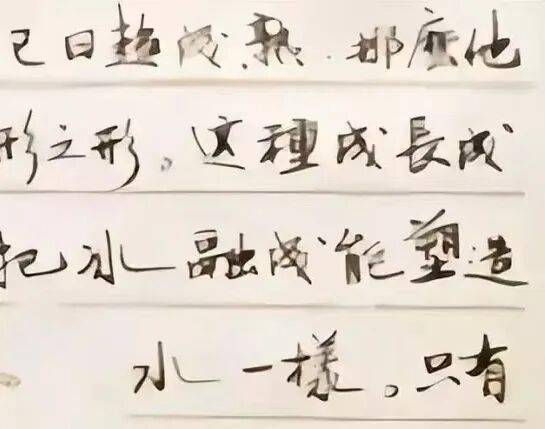 已日趨成熟.那麼他
形之形。这種成長成
把冰融成能塑造
水一樣。只有